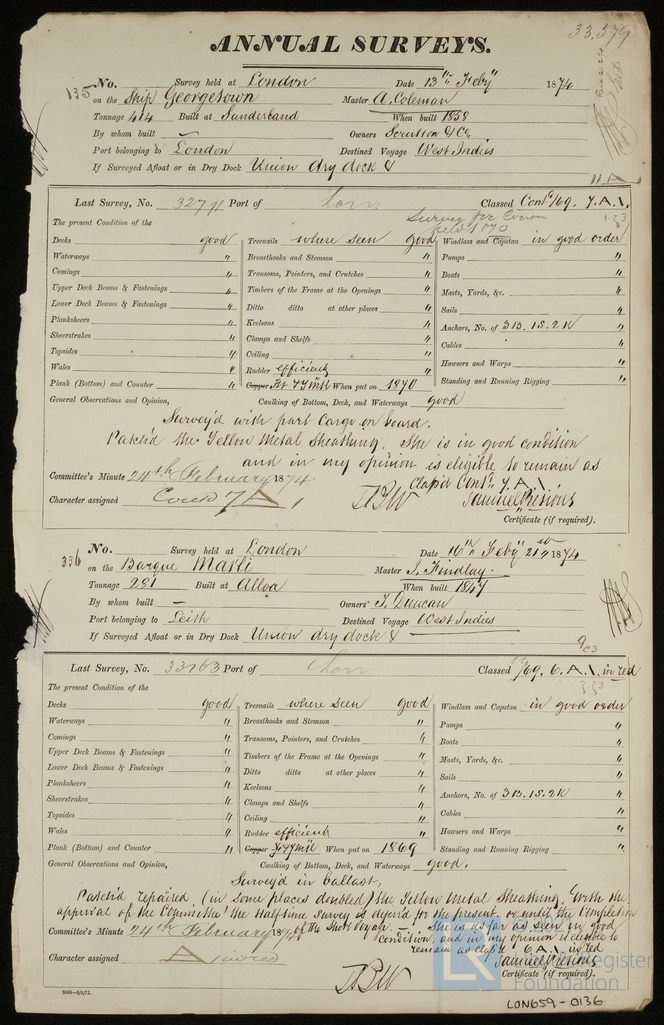 33,579
ANNUAL SURVEYS.
135 No. Survey held at London Date 13th Feby 1874
on the Ship Georgetown Master A. Coleman
Tonnage 414 Built at Sunderland When built 1858
By whom built — Owners Scrutton & Co
Port belonging to London Destined Voyage West Indies
If Surveyed Afloat or in Dry Dock Union dry dock &
Last Survey, No. Port of Lon Classed Contd /69. 7. A.1.
Survey for
held 1870
The present Condition of the
Decks good Treenails where seen good Windlass and Capstan in good order
Waterways " Breasthooks and Stemson " Pumps "
Comings " Transoms, Pointers, and Crutches " Boats "
Upper Deck Beams & Fastenings " Timbers of the Frame at the Openings " Masts, Yards, &c. "
Lower Deck Beams & Fastenings " Ditto ditto at other places " Sails "
Planksheers " Keelsons " Anchors, No. of 3B. 1S. 2K "
Sheerstrakes " Clamps and Shelfs " Cables "
Topsides " Ceiling " Hawsers and Warps "
Wales " Rudder efficient " Standing and Running Rigging "
Plank (Bottom) and Counter " Copper When put on 1870
General Observations and Opinion, Caulking of Bottom, Deck, and Waterways good
Survey'd with part Cargo on board.
the Yellow Metal Sheathing. She is in good condition
and in my opinion is eligible to remain as
Class'd Contd 7. A.1.
Committee's Minute 24th February 1874
Character assigned Contd 7 A 1
Certificate (if required).
336 No. Survey held at London Date 16th Feby 21st 1874
on the Barque Master J. Findlay
Tonnage 281 Built at Alloa When built 1847
By whom built — Owners J. Duncan
Port belonging to Leith Destined Voyage West Indies
If Surveyed Afloat or in Dry Dock Union dry dock &
Last Survey, No. 33163 Port of Lon Classed /69. 6. A.1. in red
The present Condition of the
Decks good Treenails where seen good Windlass and Capstan in good order
Waterways " Breasthooks and Stemson " Pumps "
Comings " Transoms, Pointers, and Crutches " Boats "
Upper Deck Beams & Fastenings " Timbers of the Frame at the Openings " Masts, Yards, &c. "
Lower Deck Beams & Fastenings " Ditto ditto at other places " Sails "
Planksheers " Keelsons " Anchors, No. of 3B. 1S. 2K "
Sheerstrakes " Clamps and Shelfs " Cables "
Topsides " Ceiling " Hawsers and Warps "
Wales " Rudder efficient " Standing and Running Rigging "
Plank (Bottom) and Counter " Copper When put on 1869
General Observations and Opinion, Caulking of Bottom, Deck, and Waterways good.
Survey'd in ballast.
repaired (in some places doubled) the Yellow Metal Sheathing. With the
approval of the Committee the Halftime Survey is defer'd for the present or until the Completion
of the Short Voyage. — She is as far as seen in good
condition, and in my opinion is eligible to
remain as class'd 6 A.1 in red
Committee's Minute 24th February 1874
Character assigned A in red
Certificate (if required).
Lloyd's Register
Foundation
LON659-0136